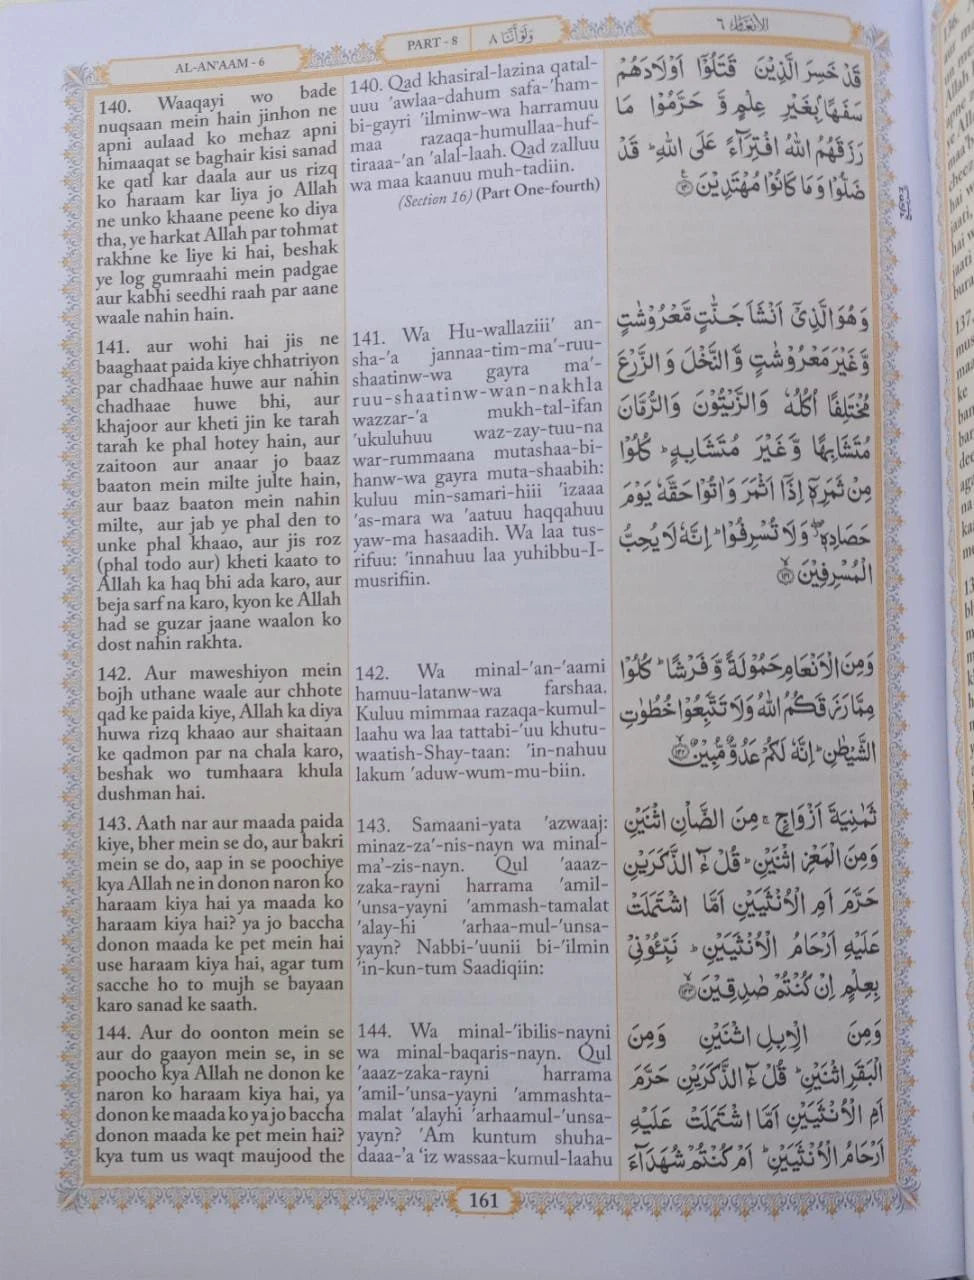 AL-AN'AAM - 6
PART - 8
وَلَوْ اَنَّنَا ٨
الْاَنْعَام ٦
140. Waaqayi wo bade
nuqsaan mein hain jinhon ne
apni aulaad ko mehaz apni
himaaqat se baghair kisi sanad
ke qatl kar daala aur us rizq
ko haraam kar liya jo Allah
ne unko khaane peene ko diya
tha, ye harkat Allah par tohmat
rakhne ke liye ki hai, beshak
ye log gumraahi mein padgae
aur kabhi seedhi raah par aane
waale nahin hain.
141. aur wohi hai jis ne
baaghaat paida kiye chhatriyon
par chadhaae huwe aur nahin
chadhaae huwe bhi, aur
khajoor aur kheti jin ke tarah
tarah ke phal hotey hain, aur
zaitoon aur anaar jo baaz
baaton mein milte julte hain,
aur baaz baaton mein nahin
milte, aur jab ye phal den to
unke phal khaao, aur jis roz
(phal todo aur) kheti kaato to
Allah ka haq bhi ada karo, aur
beja sarf na karo, kyon ke Allah
had se guzar jaane waalon ko
dost nahin rakhta.
142. Aur maweshiyon mein
bojh uthane waale aur chhote
qad ke paida kiye, Allah ka diya
huwa rizq khaao aur shaitaan
ke qadmon par na chala karo,
beshak wo tumhaara khula
dushman hai.
143. Aath nar aur maada paida
kiye, bher mein se do, aur bakri
mein se do, aap in se poochiye
kya Allah ne in donon naron ko
haraam kiya hai ya maada ko
haraam kiya hai? ya jo baccha
donon maada ke pet mein hai
use haraam kiya hai, agar tum
sacche ho to mujh se bayaan
karo sanad ke saath.
144. Aur do oonton mein se
aur do gaayon mein se, in se
poocho kya Allah ne donon ke
naron ko haraam kiya hai, ya
donon ke maada ko ya jo baccha
donon maada ke pet mein hai?
kya tum us waqt maujood the
140. Qad khasiral-lazina qatal-
uuu 'awlaa-dahum safa-'ham-
bi-gayri 'ilminw-wa harramuu
maa razaqa-humullaa-huf-
tiraaa-'an 'alal-laah. Qad zalluu
wa maa kaanuu muh-tadiin.
(Section 16) (Part One-fourth)
141. Wa Hu-wallaziii' an-
sha-'a jannaa-tim-ma'-ruu-
shaatinw-wa gayra ma'-
ruu-shaatinw-wan-nakhla
wazzar-'a mukh-tal-ifan
'ukuluhuu waz-zay-tuu-na
war-rummaana mutashaa-bi-
hanw-wa gayra muta-shaabih:
kuluu min-samari-hiii 'izaaa
'as-mara wa 'aatuu haqqahuu
yaw-ma hasaadih. Wa laa tus-
rifuu: 'innahuu laa yuhibbu-I-
musrifiin.
142. Wa minal-'an-'aami
hamuu-latanw-wa farshaa.
Kuluu mimmaa razaqa-kumul-
laahu wa laa tattabi-'uu khutu-
waatish-Shay-taan: 'in-nahuu
lakum 'aduw-wum-mu-biin.
143. Samaani-yata 'azwaaj:
minaz-za'-nis-nayn wa minal-
ma'-zis-nayn. Qul 'aaaz-
zaka-rayni harrama 'amil-
'unsa-yayni 'ammash-tamalat
'alay-hi 'arhaa-mul-'unsa-
yayn? Nabbi-'uunii bi-'ilmin
'in-kun-tum Saadiqiin:
144. Wa minal-'ibilis-nayni
wa minal-baqaris-nayn. Qul
'aaaz-zaka-rayni harrama
'amil-'unsa-yayni 'ammashta-
malat 'alayhi 'arhaamul-'unsa-
yayn? 'Am kuntum shuha-
daaa-'a 'iz wassaa-kumul-laahu
قَدْ خَسِرَ الَّذِيْنَ قَتَلُوْۤا اَوْلَادَهُمْ
سَفَهًۢا بِغَيْرِ عِلْمٍ وَّ حَرَّمُوْا مَا
رَزَقَهُمُ اللّٰهُ افْتِرَآءً عَلَى اللّٰهِ ؕ قَدْ
ضَلُّوْا وَ مَا كَانُوْا مُهْتَدِيْنَ ۝۱۴۰
وَ هُوَ الَّذِيْۤ اَنْشَاَ جَنّٰتٍ مَّعْرُوْشٰتٍ
وَّ غَيْرَ مَعْرُوْشٰتٍ وَّ النَّخْلَ وَ الزَّرْعَ
مُخْتَلِفًا اُكُلُهٗ وَ الزَّيْتُوْنَ وَ الرُّمَّانَ
مُتَشَابِهًا وَّ غَيْرَ مُتَشَابِهٍ ؕ كُلُوْا
مِنْ ثَمَرِهٖۤ اِذَاۤ اَثْمَرَ وَ اٰتُوْا حَقَّهٗ يَوْمَ
حَصَادِهٖ ۖ وَ لَا تُسْرِفُوْا ؕ اِنَّهٗ لَا يُحِبُّ
الْمُسْرِفِيْنَ ۝۱۴۱
وَ مِنَ الْاَنْعَامِ حَمُوْلَةً وَّ فَرْشًا ؕ كُلُوْا
مِمَّا رَزَقَكُمُ اللّٰهُ وَ لَا تَتَّبِعُوْا خُطُوٰتِ
الشَّيْطٰنِ ؕ اِنَّهٗ لَكُمْ عَدُوٌّ مُّبِيْنٌ ۝۱۴۲
ثَمٰنِيَةَ اَزْوَاجٍ ۚ مِنَ الضَّاْنِ اثْنَيْنِ
وَ مِنَ الْمَعْزِ اثْنَيْنِ ؕ قُلْ ءٰٓالذَّكَرَيْنِ
حَرَّمَ اَمِ الْاُنْثَيَيْنِ اَمَّا اشْتَمَلَتْ
عَلَيْهِ اَرْحَامُ الْاُنْثَيَيْنِ ؕ نَبِّـُٔوْنِيْ
بِعِلْمٍ اِنْ كُنْتُمْ صٰدِقِيْنَ ۝۱۴۳
وَ مِنَ الْاِبِلِ اثْنَيْنِ وَ مِنَ
الْبَقَرِ اثْنَيْنِ ؕ قُلْ ءٰٓالذَّكَرَيْنِ حَرَّمَ
اَمِ الْاُنْثَيَيْنِ اَمَّا اشْتَمَلَتْ عَلَيْهِ
اَرْحَامُ الْاُنْثَيَيْنِ ؕ اَمْ كُنْتُمْ شُهَدَآءَ
161